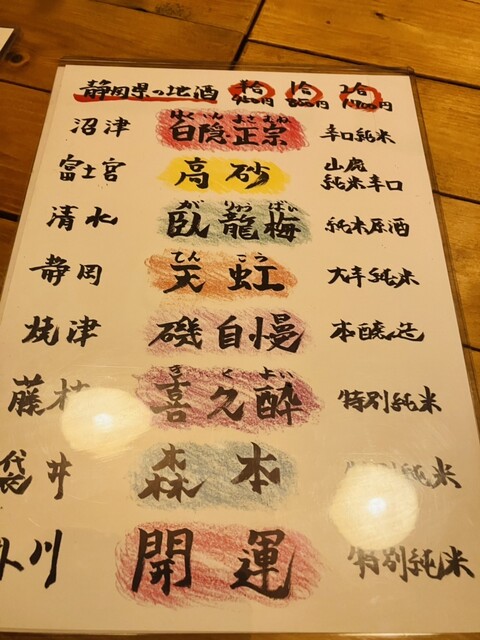 静岡県の地酒 半合 1合 2合
はくいんまさむね
沼津 白隠正宗 辛口純米
富士宮 高砂 山廃
純米辛口
がりゅうばい
清水 臥龍梅 純米原酒
てんこう
静岡 天虹 大辛純米
焼津 磯自慢 本醸造
きくよい
藤枝 喜久酔 特別純米
井 森本 特別純米
川 開運 特別純米